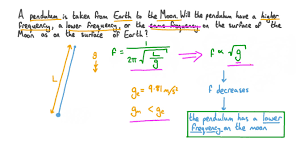 A pendulum is taken from Earth to the Moon. Will the pendulum have a higher
frequency, a lower frequency, or the same frequency on the surface of the
Moon as on the surface of Earth?
L
g
f = 1 / 2π √(L/g)
f ∝ √g
g_e = 9.81 m/s²
g_m < g_e
f decreases
the pendulum has a lower
frequency on the moon